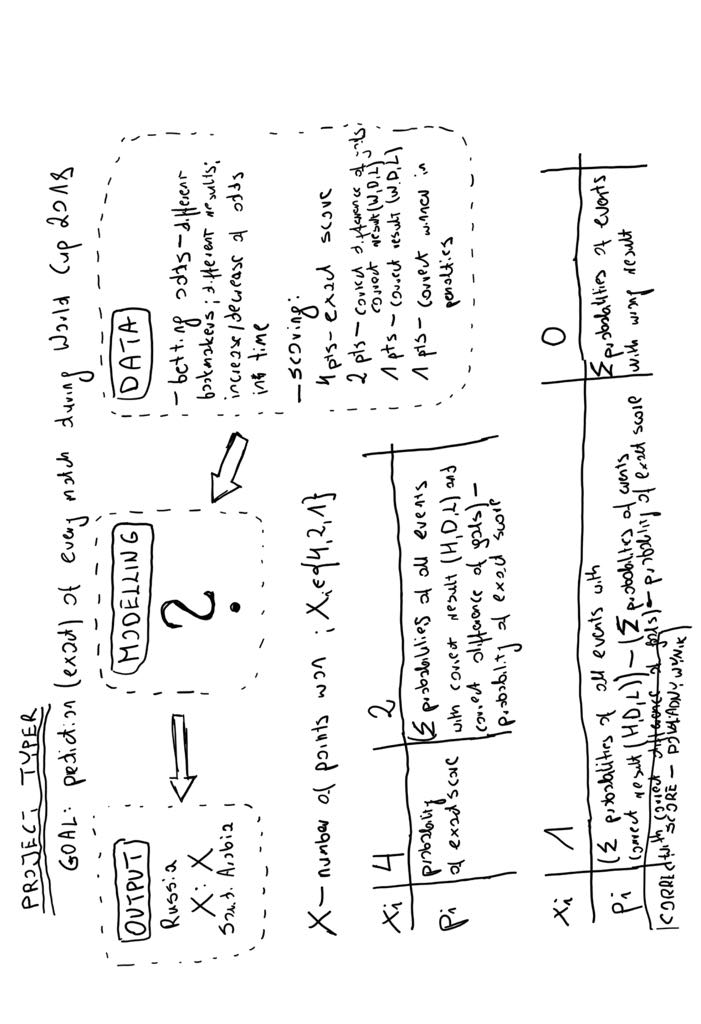 PROJECT TYPER
GOAL: prediction (exact) of every match during World Cup 2018
OUTPUT
Russia
X : X
Saud. Arabia
MODELLING
?
DATA
- betting odds - different
bookmakers; different results;
increase/decrease of odds
in time
- scoring:
4 pts - exact score
2 pts - correct difference of
correct result (W,D,L)
1 pts - correct result (W,D,L)
1 pts - correct winner in
penalties
X - number of points won ; Xi ∈ {4,2,1}
xi 4 2
pi probability
of exact score
(Σ probabilities of all events
with correct result (H,D,L) and
correct difference of goals) -
probability of exact score
xi 1 0
pi (Σ probabilities of all events with
correct result (H,D,L)) - (Σ probabilities of events
with correct difference of goals) - probability of exact score
CORRECT SCORE - DOKŁADNY WYNIK
Σ probabilities of events
with wrong result